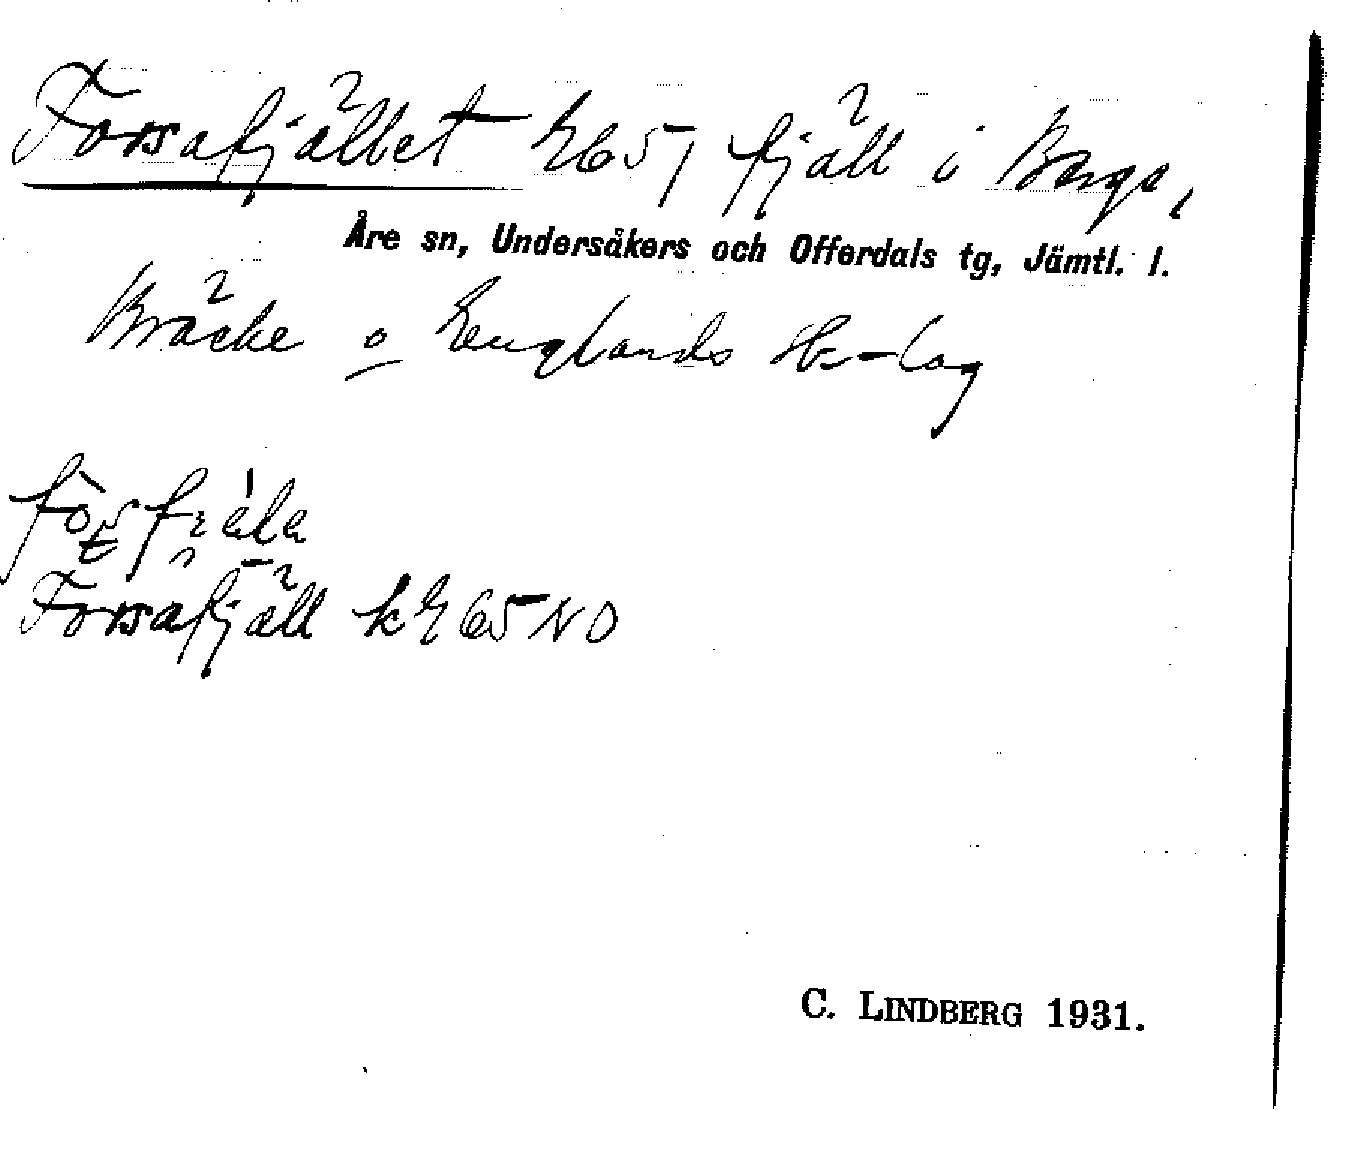 Forsafjället 265, fjäll i Bergs,
Åre sn, Undersåkers och Offerdals tg, Jämtl. l.
Bräcke o Englands Hb-lag
Forsåfjäll k 265 NO
C. LINDBERG 1931.